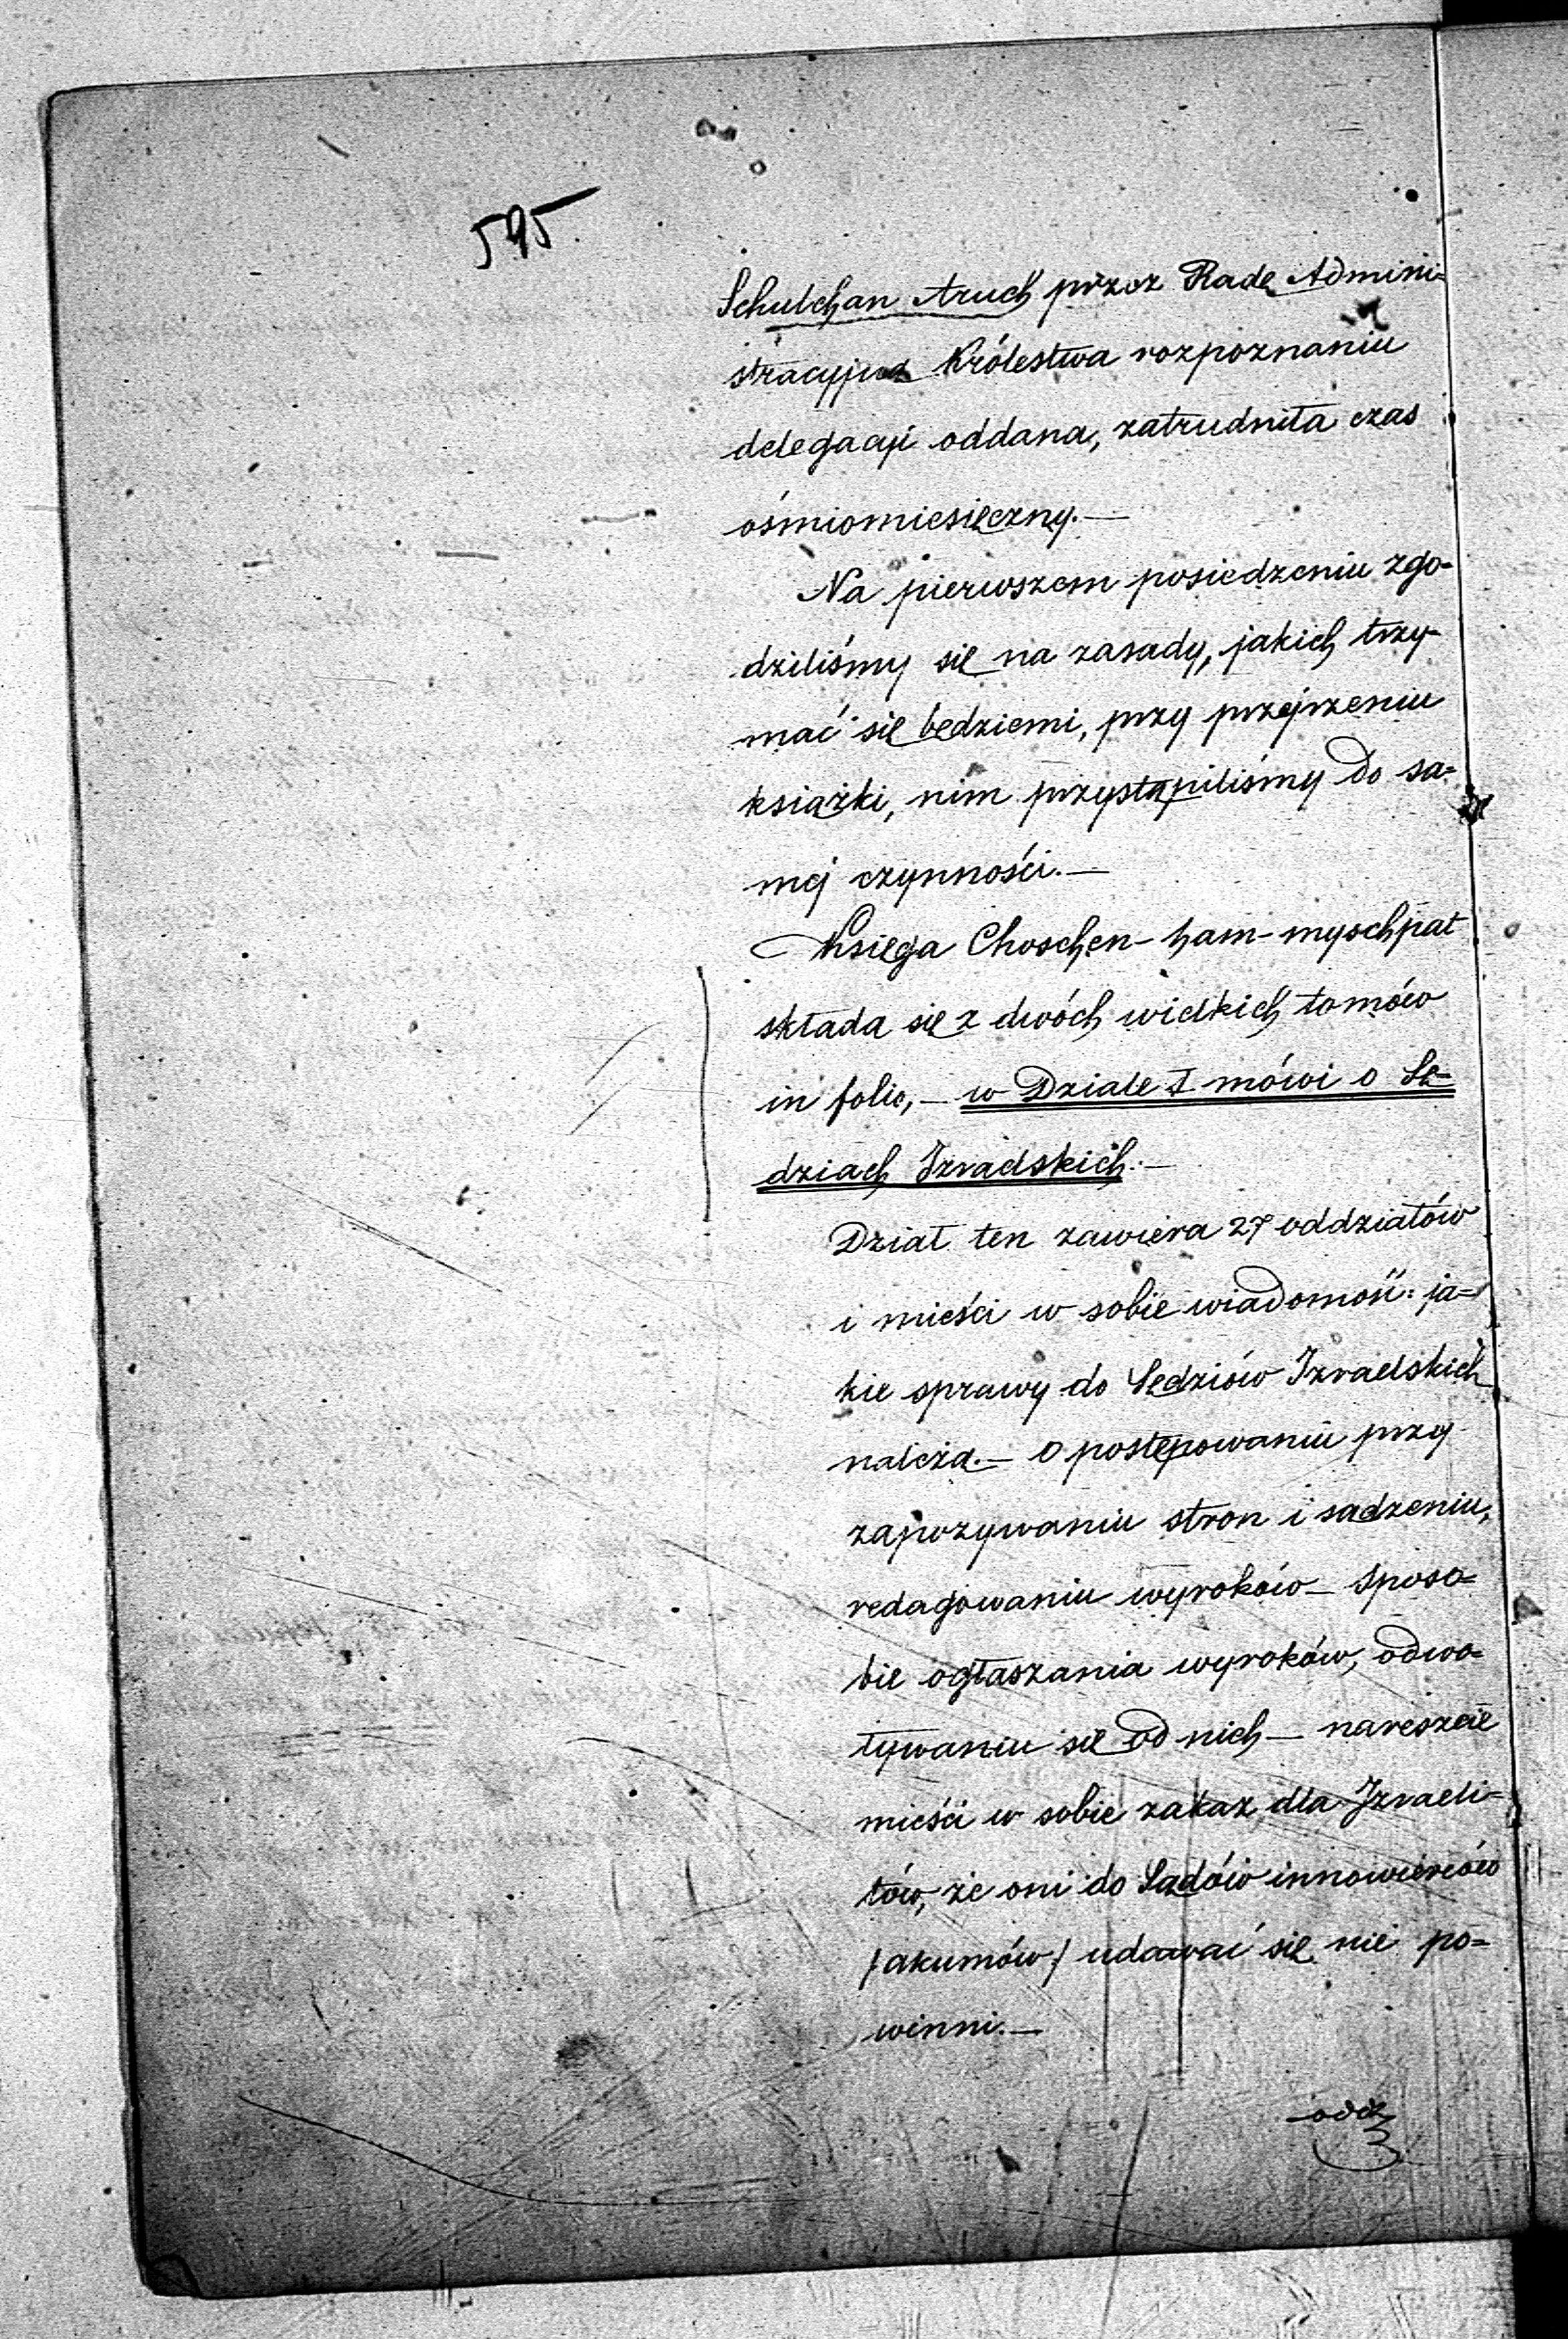 595
Schulchan Aruch" przez Radę Admini=
stracyjną Królestwa rozpoznaniu
delegacyi oddana, zatrudniła czas
ośmiomiesięczny.—
Na pierwszem posiedzeniu zgo-
dziliśmy się na zasady, jakich trzy-
mać się będziemi, przy przejrzeniu
książki, nim przystąpiliśmy do sa=
mej czynności.—
Księga Choschen-ham-myschpat
składa się z dwóch wielkich tomów
in folio,— w Dziale I mówi o Sę=
dziach Izraelskich.—
Dział ten zawiera 27 oddziałów
i mieści w sobie wiadomość: ja=
kie sprawy do Sędziów Izraelskich
należą.— O postępowaniu przy
zapozywaniu stron i sądzeniu,
redagowaniu wyroków— sposo=
bie ogłaszania wyroków, odwo=
ływaniu się od nich— nareszcie
mieści w sobie zakaz dla Izraeli=
tów, że oni do Sądów innowierców
/akumów/ udawać się nie po=
winni.—